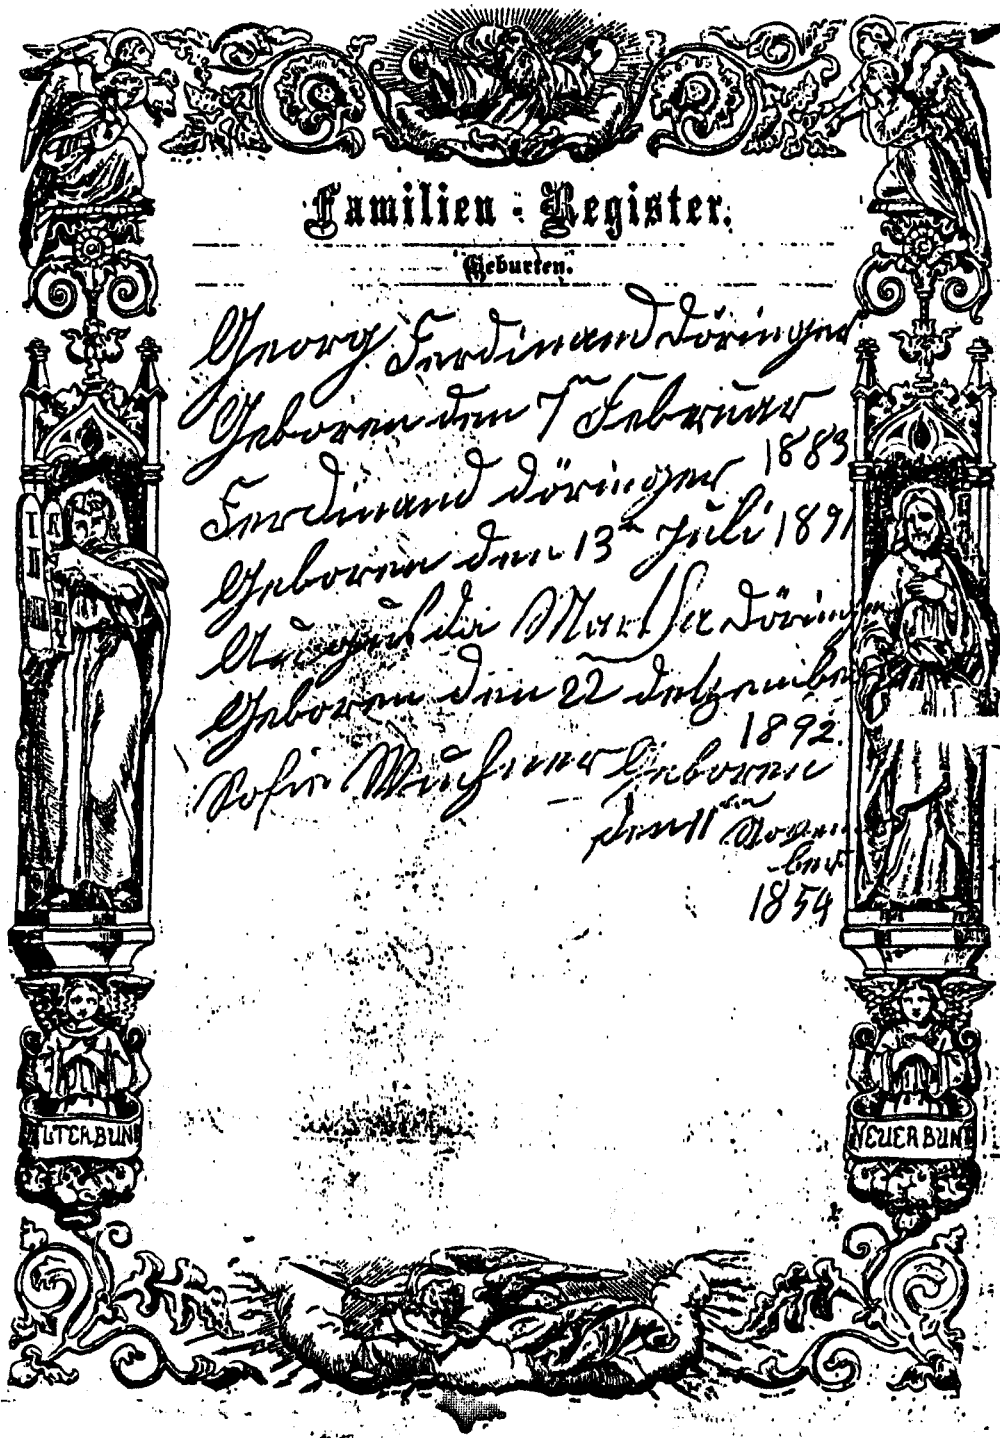 Familien-Register.
Geburten.
Georg Ferdinand Döringer
Geboren den 7ⁿ Februar
1883
Ferdinand Döringer
Geboren den 13ⁿ Juli 1891
Augusta Martha Döring
Geboren den 22 Detzember
1892
Sofie Geboren
den 11ten Novem
ber
1854
I
II
ALTER BUND
NEUER BUND